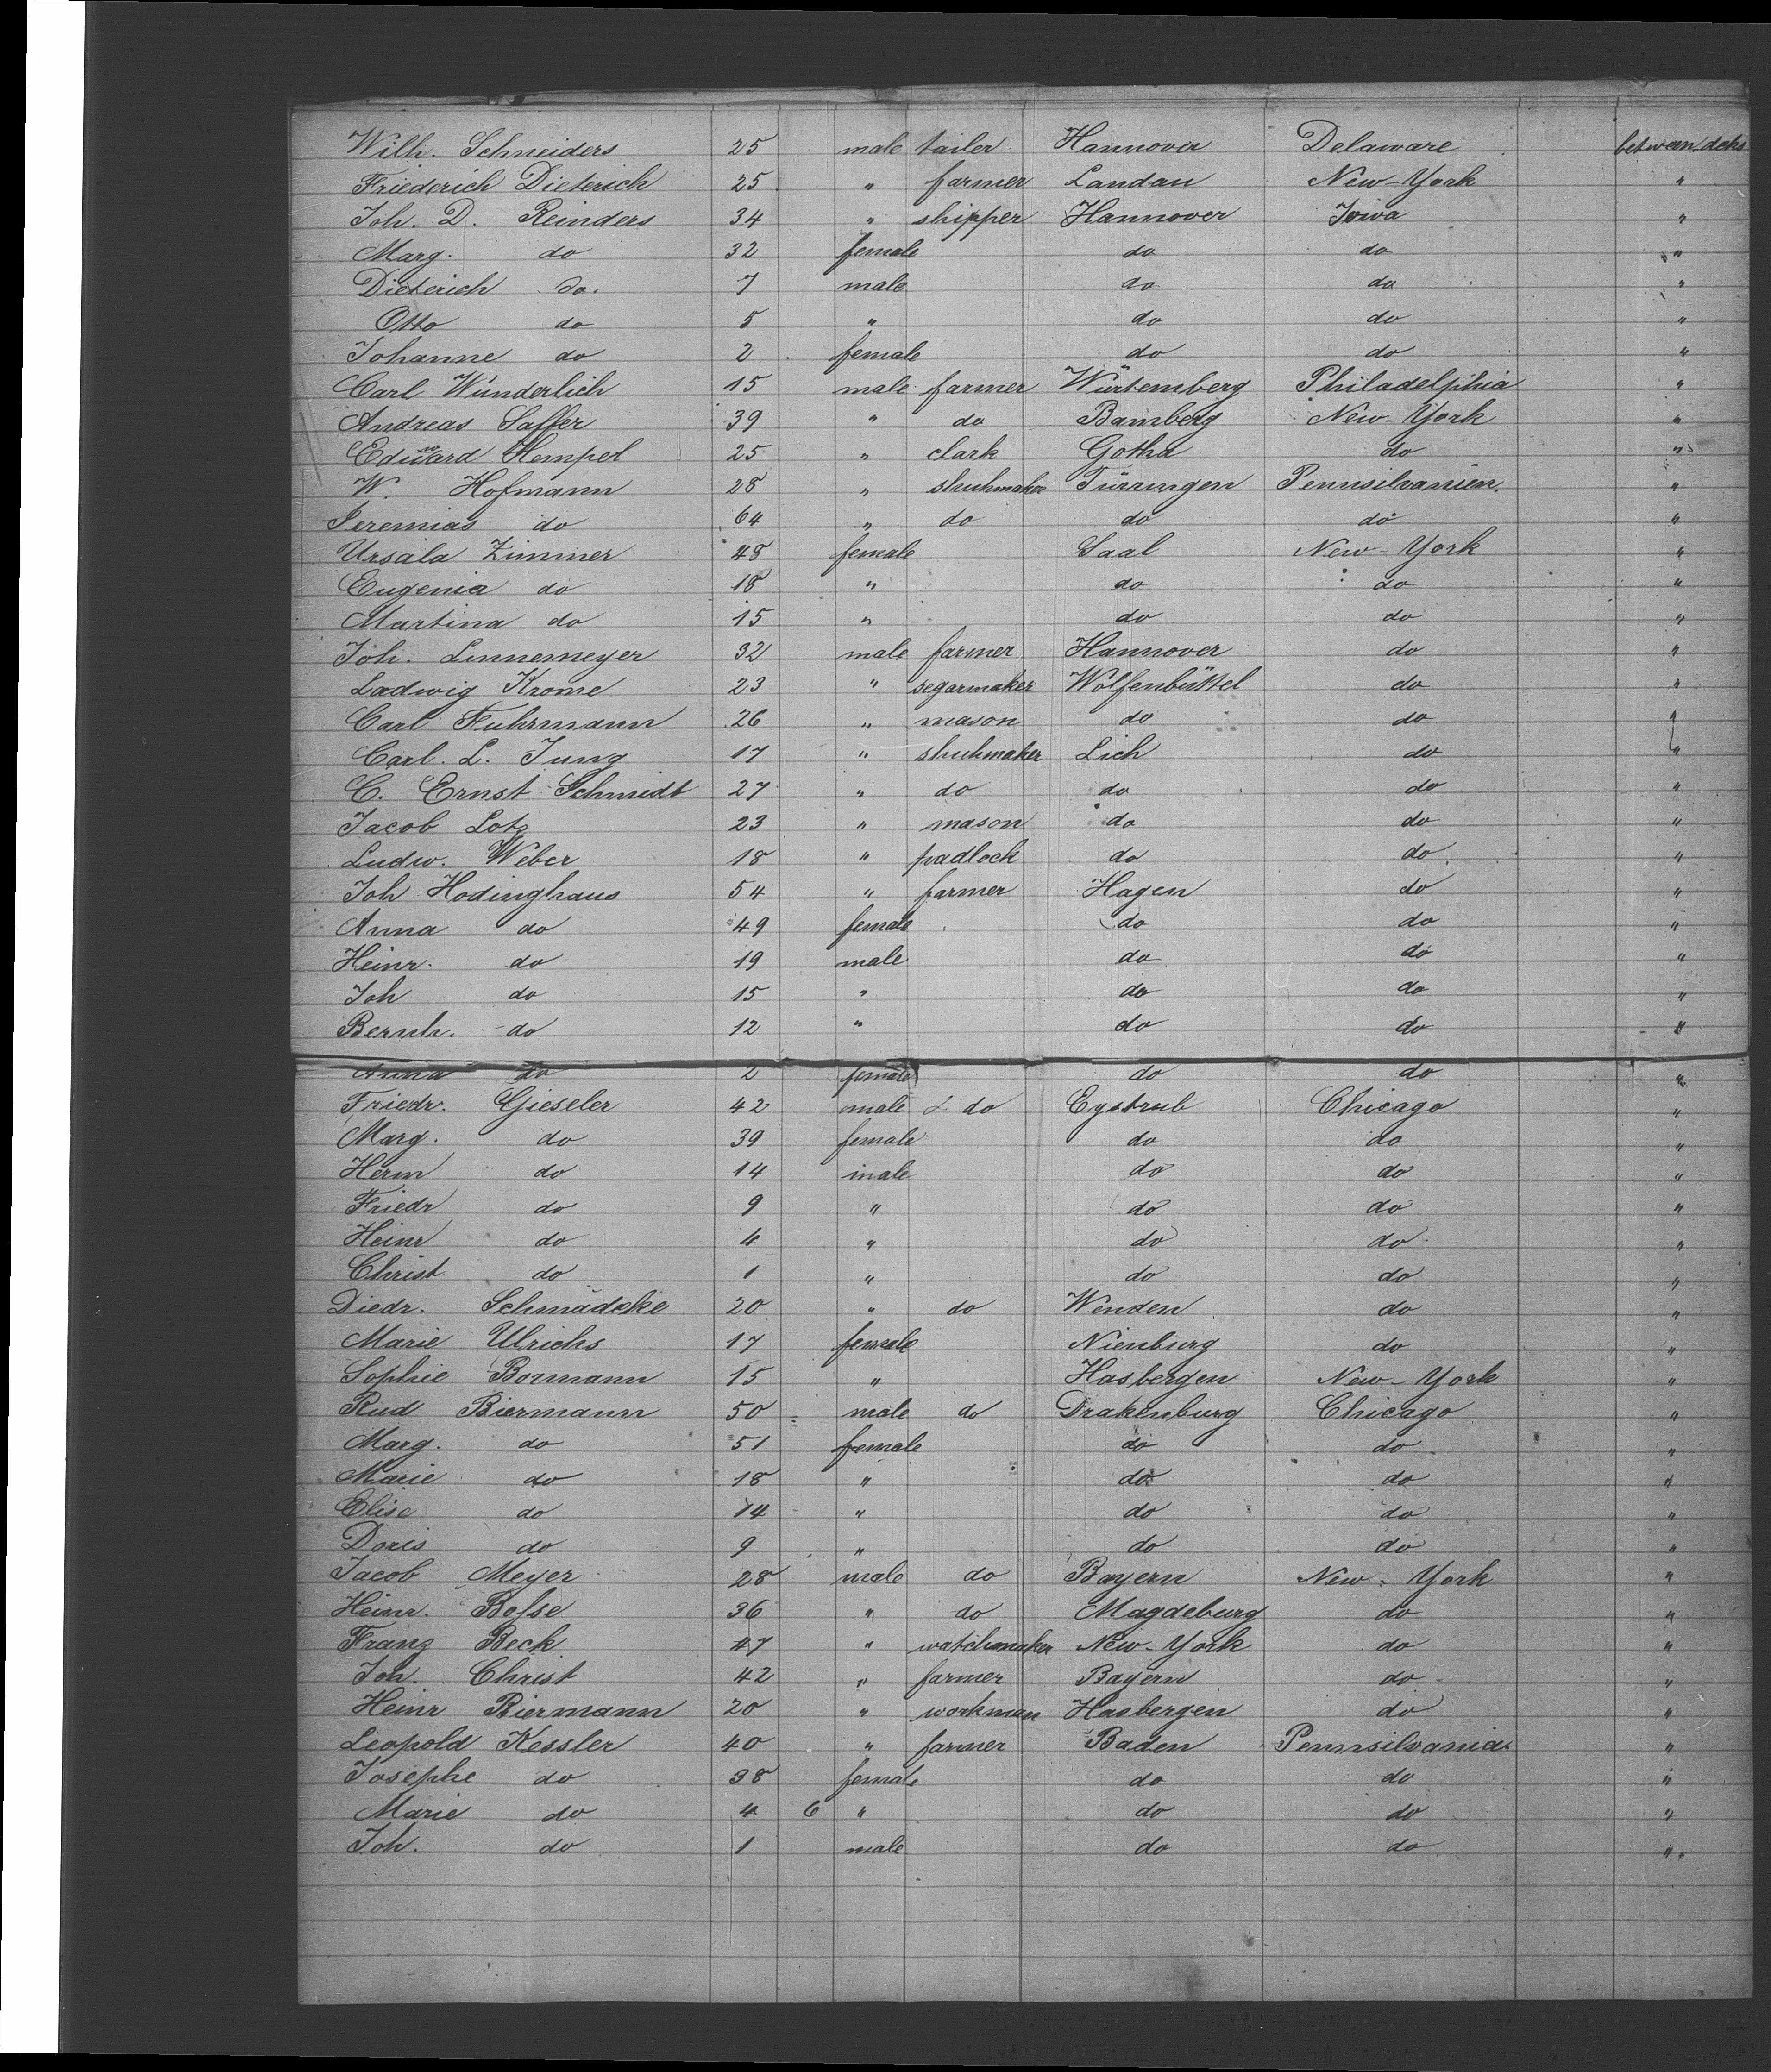 Wilh. Schneiders 25 male tailer Hannover Delaware between decks
Friederich Dieterich 25 " farmer Landau New-York "
Joh. D. Reinders 34 " shipper Hannover Iowa "
Marg. do 32 female do do "
Dieterich do. 7 male do do "
Otto do 5 " do do "
Johanne do 2 female do do "
Carl Wünderlich 15 male farmer Würtemberg Philadelphia "
Andreas Saffer 39 " do Bamberg New-York "
Edward Hempel 25 " clark Gotha do "
W. Hofmann 28 " shuhmaker Türringen Pennsilvanien. "
Jeremias do 64 " do do do "
Ursala Zimmer 48 female Saal New-York "
Eugenia do 18 " do do "
Martina do 15 " do do "
Joh. Linnemeyer 32 male farmer Hannover do "
Ladwig Krome 23 " segarmaker Wolfenbüttel do "
Carl Fuhrmann 26 " mason do do "
Carl. L. Jung 17 " shuhmaker Lich do "
C. Ernst Schmidt 27 " do do do "
Jacob Lotz 23 " mason do do "
Ludw. Weber 18 " padlock do do "
Joh Hodinghaus 54 " farmer Hagen do "
Anna do 49 female do do "
Heinr. do 19 male do do "
Joh do 15 " do do "
Bernh. do 12 " do do "
Anna do 2 female do do "
Friedr. Gieseler 42 male do Eystrub Chicago "
Marg. do 39 female do do "
Herm do 14 male do do "
Friedr do 9 " do do "
Heinr do 4 " do do "
Christ do 1 " do do "
Diedr. Schmädeke 20 " do Wenden do "
Marie Ulrichs 17 female Nienburg do "
Sophie Bormann 15 " Hasbergen New-York "
Rud Biermann 50 male do Drakenburg Chicago "
Marg. do 51 female do do "
Marie do 18 " do do "
Elise do 14 " do do "
Doris do 9 " do do "
Jacob Meyer 28 male do Bayern New-York "
Heinr. Bosse 36 " do Magdeburg do "
Franz Beck 47 " watchmaker New-York do "
Joh. Christ 42 " farmer Bayern do "
Heinr Biermann 20 " workman Hasbergen do "
Leopold Kessler 40 " farmer Baden Pennsilvania "
Josephe do 38 female do do "
Marie do 4 6 " do do "
Joh. do 1 male do do "